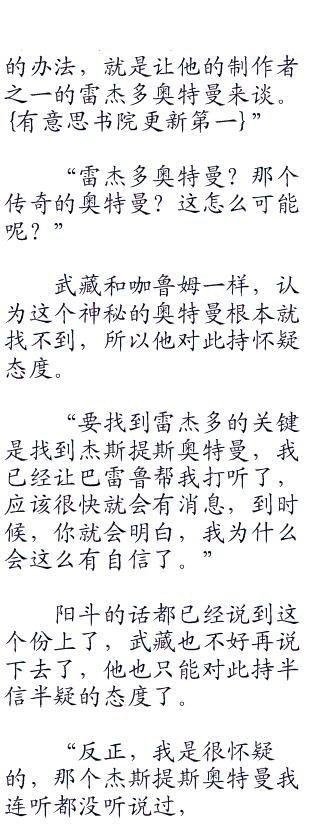 的办法，就是让他的制作者
之一的雷杰多奥特曼来谈。
{有意思书院更新第一}”
“雷杰多奥特曼？那个
传奇的奥特曼？这怎么可能
呢？”
武藏和咖鲁姆一样，认
为这个神秘的奥特曼根本就
找不到，所以他对此持怀疑
态度。
“要找到雷杰多的关键
是找到杰斯提斯奥特曼，我
已经让巴雷鲁帮我打听了，
应该很快就会有消息，到时
候，你就会明白，我为什么
会这么有自信了。”
阳斗的话都已经说到这
个份上了，武藏也不好再说
下去了，他也只能对此持半
信半疑的态度了。
“反正，我是很怀疑
的，那个杰斯提斯奥特曼我
连听都没听说过，